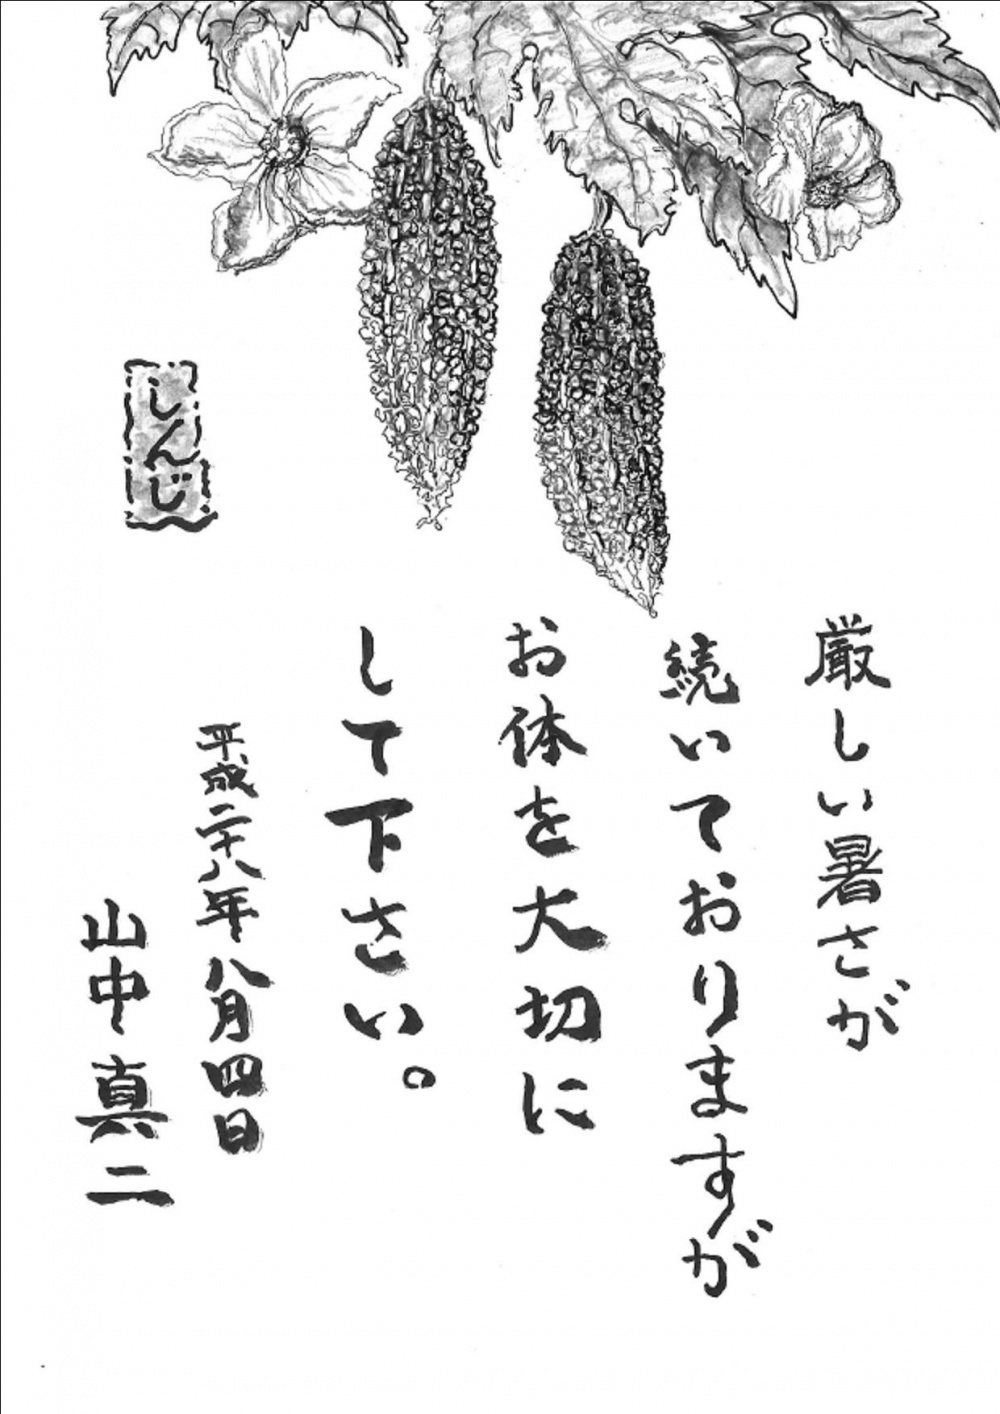 厳しい暑さが
続いておりますが
お体を大切に
して下さい。
平成二十八年八月四日
山中真二
しんじ